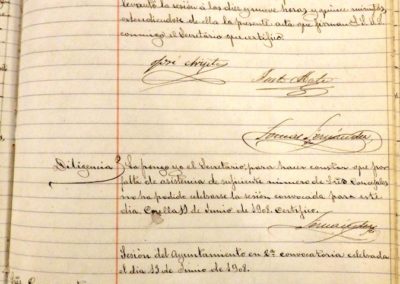 levantó la sesión á las diez y nueve horas y quince minutos,
estendiendose de ella la presente acta que firman S.S.S.S.
conmigo el Secretario que certifico.
José
Diligencia} La pongo yo el Secretario para hacer constar que por
falta de asistencia de suficiente número de Sres Concejales
no ha podido celebrarse la sesión convocada para este
dia. Corella 11 de Junio de 1908. Certifico.
Sesión del Ayuntamiento en 2ª convocatoria celebrada
el dia 13 de Junio de 1908.